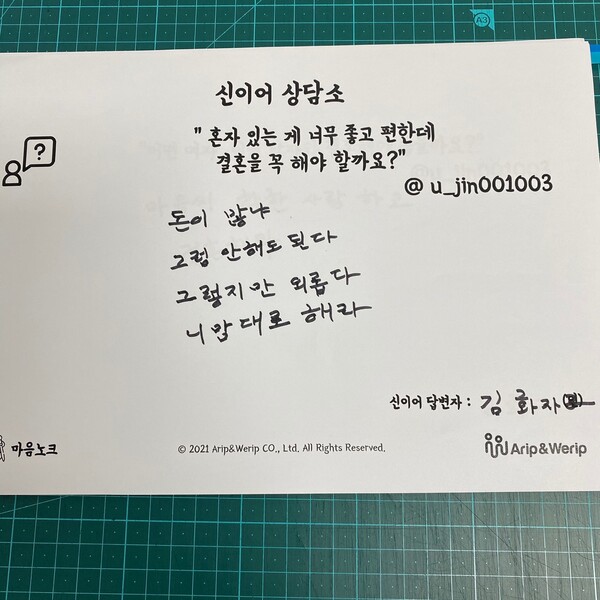 A3
신이어 상담소
?
" 혼자 있는 게 너무 좋고 편한데
결혼을 꼭 해야 할까요?"
@ u_jin001003
돈이 많냐
그럼 안해도 된다
그렇지만 외롭다
니 맘대로 해라
신이어 답변자 : 김 화자
마음노크
© 2021 Arip&Werip CO., Ltd. All Rights Reserved.
Arip&Werip